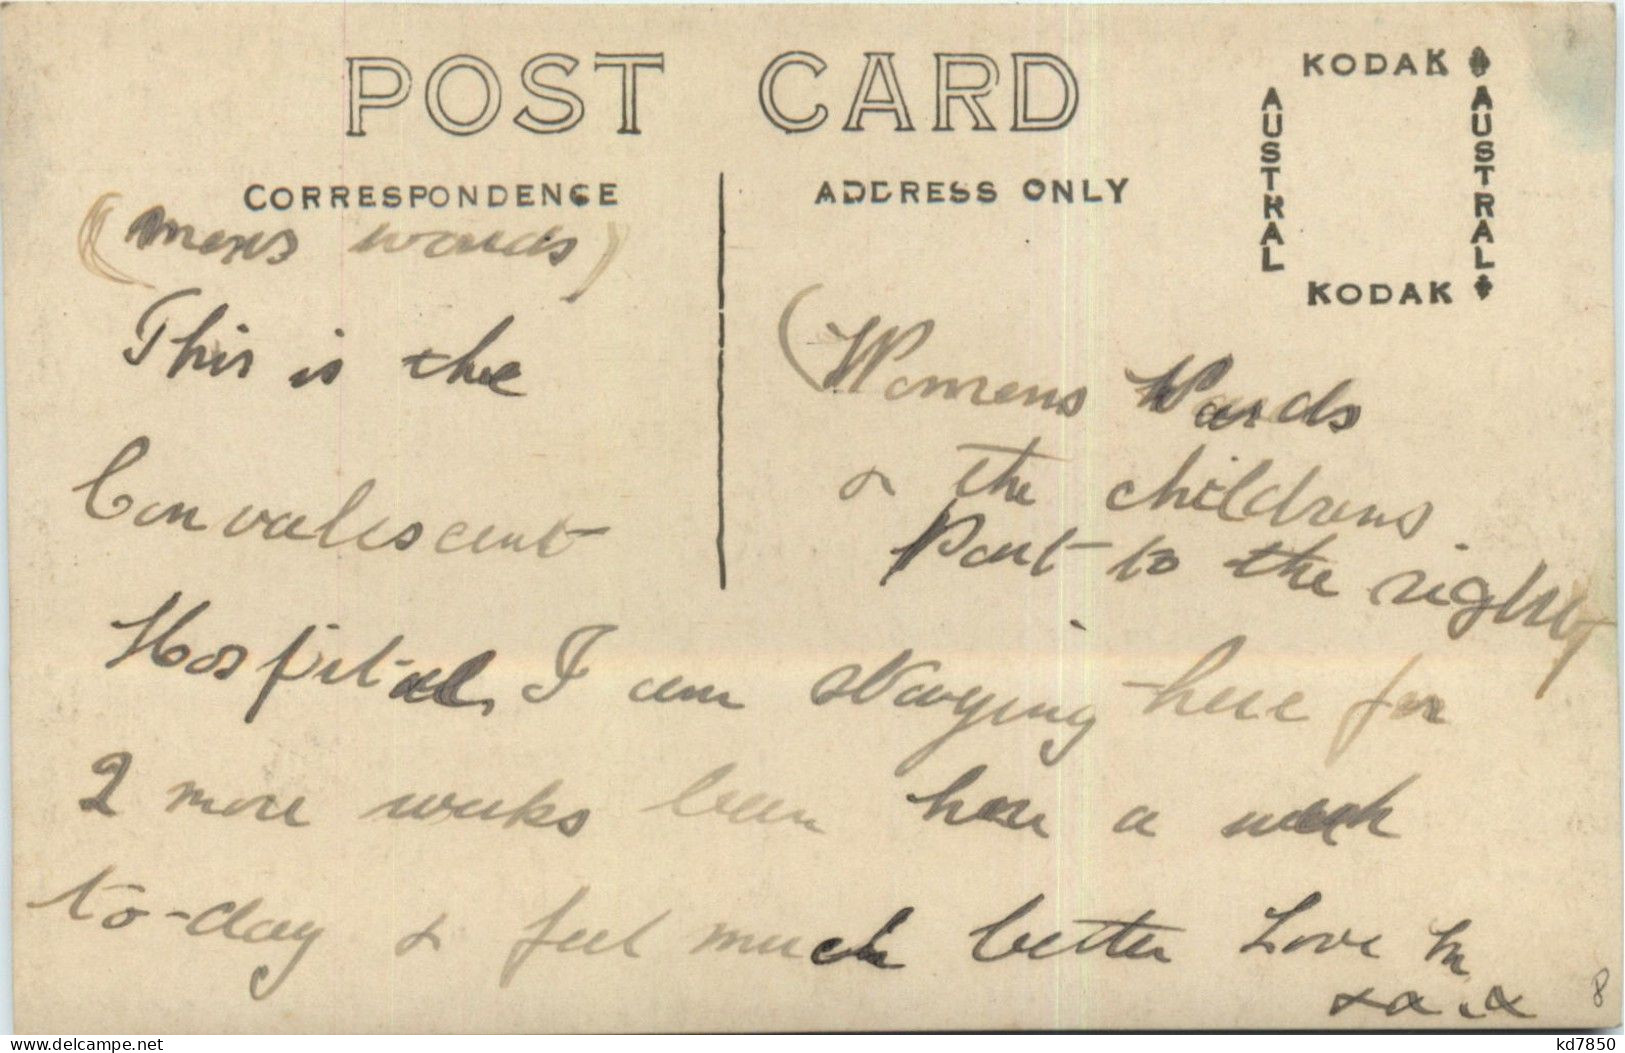 POST CARD
KODAK
AUSTRAL
AUSTRAL
KODAK
CORRESPONDENCE
ADDRESS ONLY
(mens wards)
This is the
Convalescent
(Womens Wards
& the childrens
Part to the right
Hospital, I am staying here for
2 more weeks been here a week
to-day & feel much better Love M
x x . x
8
kd7850
delcampe.net